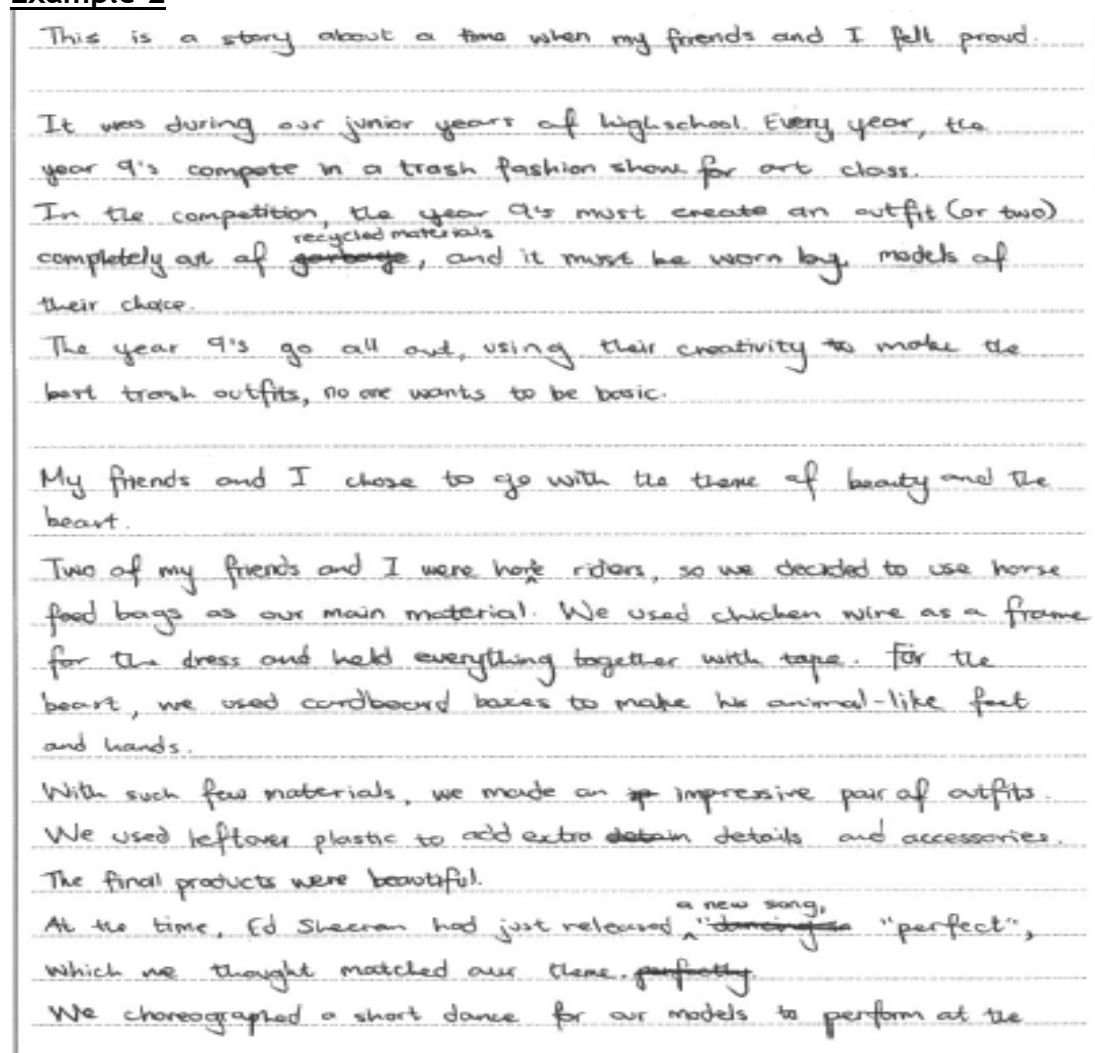 Example 2
This is a story about a time when my friends and I felt proud.
It was during our junior years of highschool. Every year, the
year 9's compete in a trash fashion show for art class.
In the competition, the year 9's must create an outfit (or two)
recycled materials
completely out of garbage, and it must be worn by models of
their choice.
The year 9's go all out, using their creativity to make the
best trash outfits, no one wants to be basic.
My friends and I chose to go with the theme of beauty and the
beast.
Two of my friends and I were horse riders, so we decided to use horse
feed bags as our main material. We used chicken wire as a frame
for the dress and held everything together with tape. For the
beast, we used cardboard boxes to make his animal-like feet
and hands.
With such few materials, we made an impressive pair of outfits.
We used leftover plastic to add extra details and accessories.
The final products were beautiful.
a new song,
At the time, Ed Sheeran had just released "perfect",
which we thought matched our theme. perfectly.
We choreographed a short dance for our models to perform at the